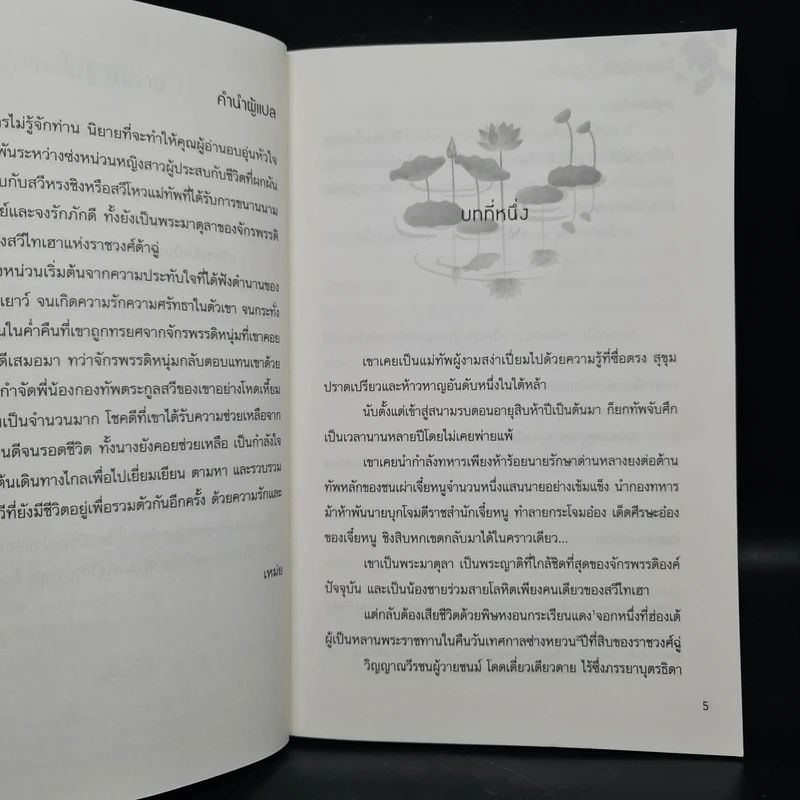 คำนำผู้แปล
ไม่รู้จักท่าน นิยายที่จะทำให้คุณผู้อ่านอบอุ่นหัวใจ
พันระหว่างซ่งหน่วนหญิงสาวผู้ประสบกับชีวิตที่ผกผัน
กับสวีหรงชิงหรือสวีโหวแม่ทัพที่ได้รับการขนานนาม
และจงรักภักดี ทั้งยังเป็นพระมาตุลาของจักรพรรดิ
สวีไทเฮาแห่งราชวงศ์ต้าฉู่
หน่วนเริ่มต้นจากความประทับใจที่ได้ฟังตำนานของ
เยาว์ จนเกิดความรักความศรัทธาในตัวเขา จนกระทั่ง
ในค่ำคืนที่เขาถูกทรยศจากจักรพรรดิหนุ่มที่เขาคอย
ดีเสมอมา ทว่าจักรพรรดิหนุ่มกลับตอบแทนเขาด้วย
กำจัดพี่น้องกองทัพตระกูลสวีของเขาอย่างโหดเหี้ยม
เป็นจำนวนมาก โชคดีที่เขาได้รับความช่วยเหลือจาก
จนรอดชีวิต ทั้งนางยังคอยช่วยเหลือ เป็นกำลังใจ
เดินทางไกลเพื่อไปเยี่ยมเยียน ตามหา และรวบรวม
ที่ยังมีชีวิตอยู่เพื่อรวมตัวกันอีกครั้ง ด้วยความรักและ
เหม่ย
บทที่หนึ่ง
เขาเคยเป็นแม่ทัพผู้งามสง่าเปี่ยมไปด้วยความรู้ที่ซื่อตรง สุขุม
ปราดเปรียวและห้าวหาญอันดับหนึ่งในใต้หล้า
นับตั้งแต่เข้าสู่สนามรบตอนอายุสิบห้าปีเป็นต้นมา ก็ยกทัพจับศึก
เป็นเวลานานหลายปีโดยไม่เคยพ่ายแพ้
เขาเคยนำกำลังทหารเพียงห้าร้อยนายรักษาด่านหลางยงต่อต้าน
ทัพหลักของชนเผ่าเจี๋ยหนูจำนวนหนึ่งแสนนายอย่างเข้มแข็ง นำกองทหาร
ม้าห้าพันนายบุกโจมตีราชสำนักเจี๋ยหนู ทำลายกระโจมอ๋อง เด็ดศีรษะอ๋อง
ของเจี๋ยหนู ชิงสิบหกเขตกลับมาได้ในคราวเดียว...
เขาเป็นพระมาตุลา เป็นพระญาติที่ใกล้ชิดที่สุดของจักรพรรดิองค์
ปัจจุบัน และเป็นน้องชายร่วมสายโลหิตเพียงคนเดียวของสวีไทเฮา
แต่กลับต้องเสียชีวิตด้วยพิษหงอนกระเรียนแดง¹จอกหนึ่งที่ฮ่องเต้
ผู้เป็นหลานพระราชทานในคืนวันเทศกาลซ่างหยวน²ปีที่สิบของราชวงศ์ฉู่
วิญญาณวีรชนผู้วายชนม์ โดดเดี่ยวเดียวดาย ไร้ซึ่งภรรยาบุตรธิดา
5